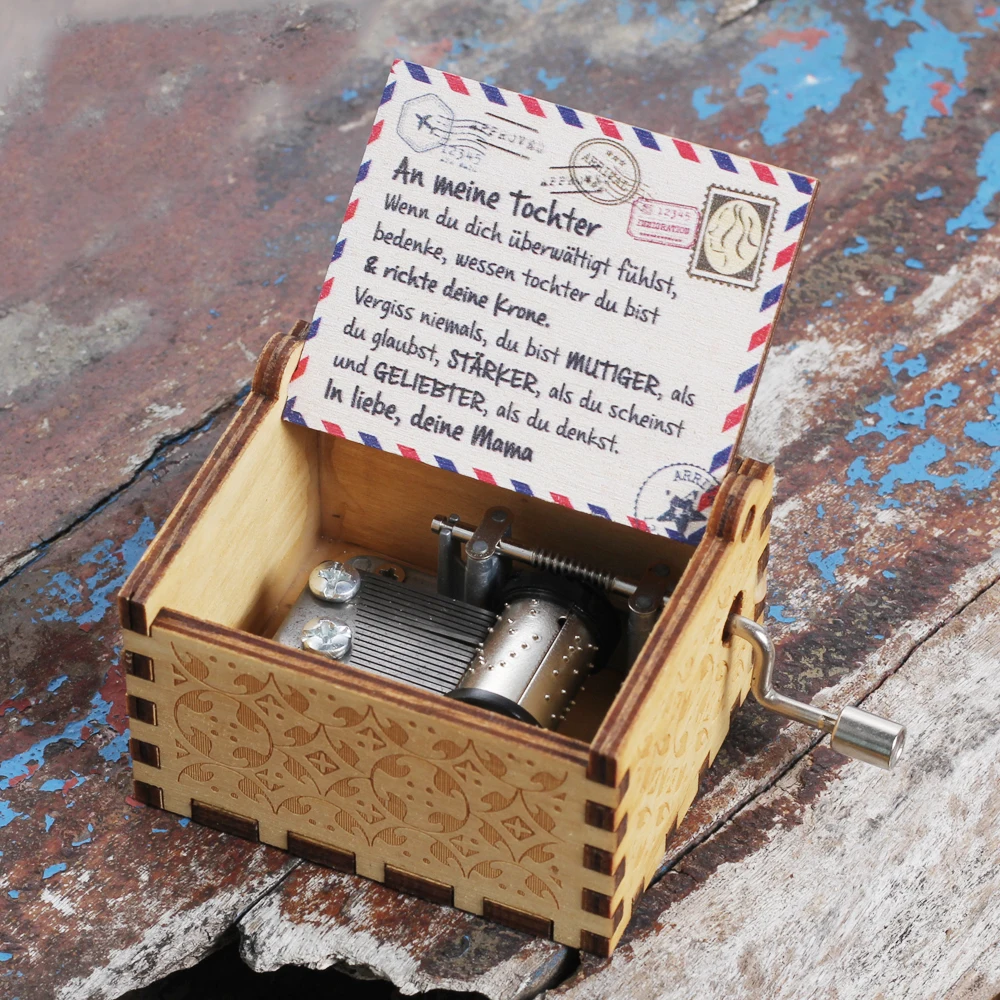 APPROVED
12345
ARRIVED
12345
IMMIGRATION
An meine Tochter
Wenn du dich überwältigt fühlst,
bedenke, wessen tochter du bist
& richte deine Krone.
Vergiss niemals, du bist MUTIGER, als
du glaubst, STÄRKER, als du scheinst
und GELIEBTER, als du denkst.
In liebe, deine Mama